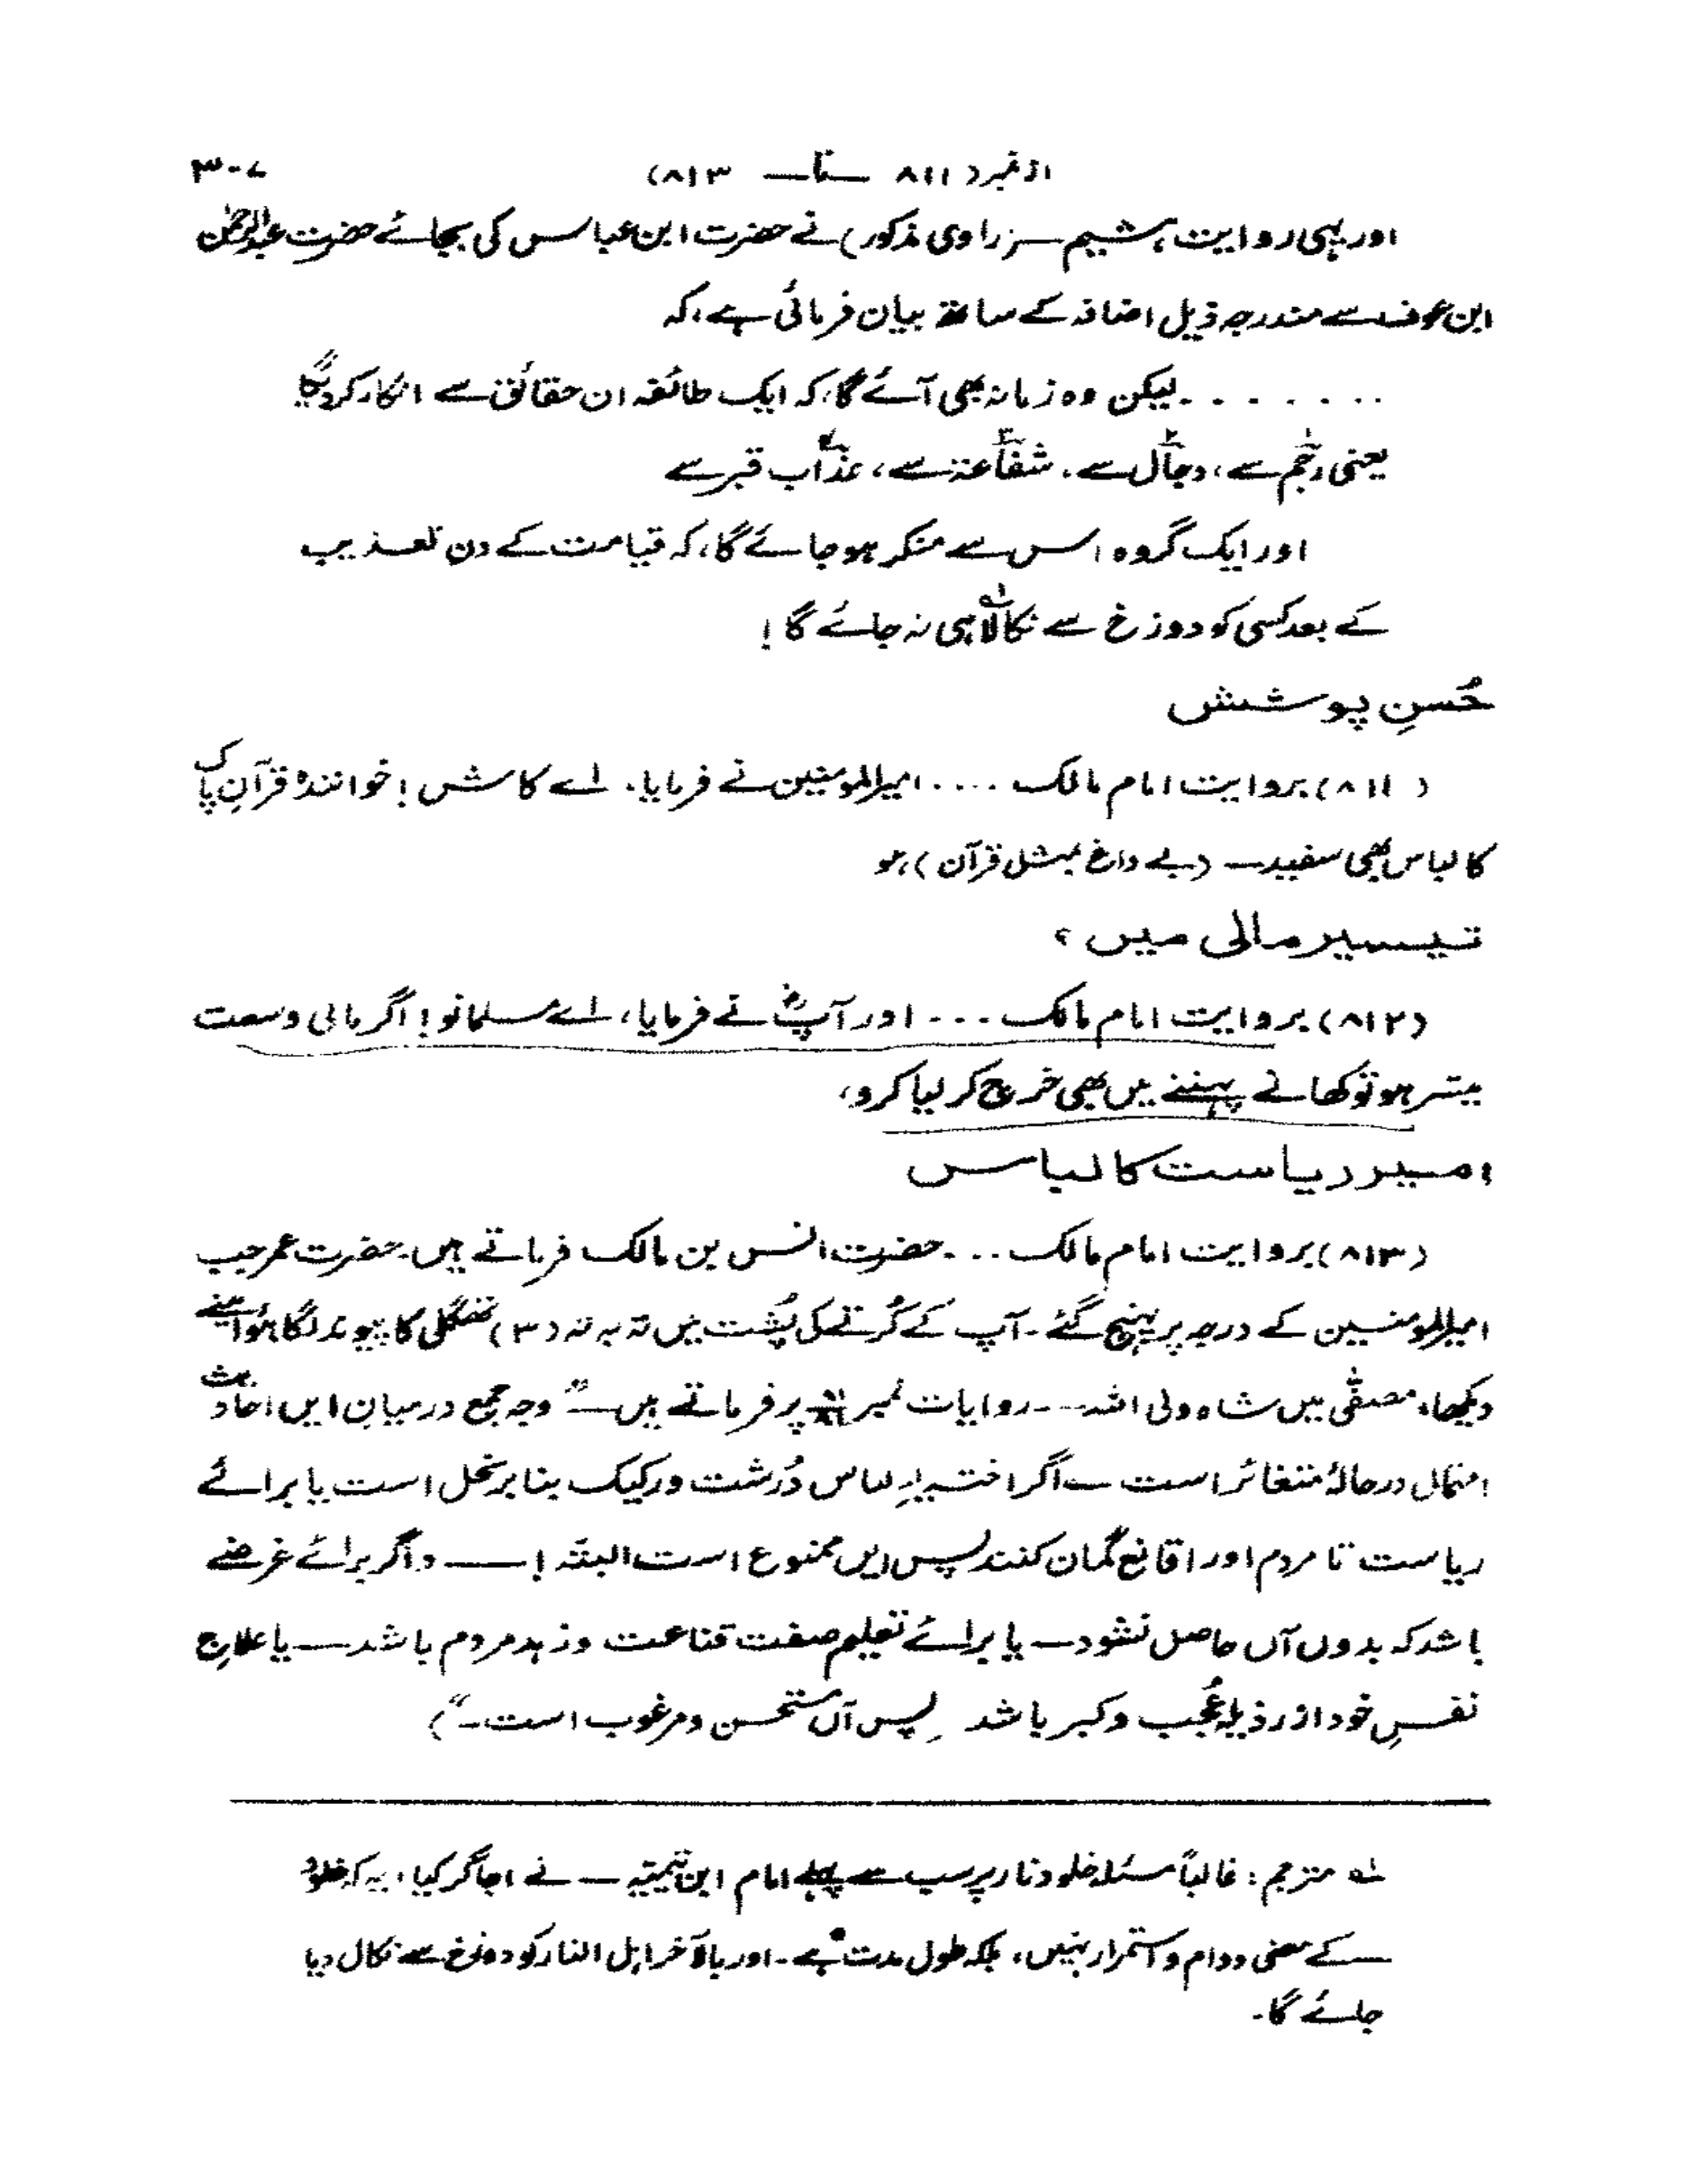 از نمبر (۸۱۱ تا ۸۱۳) ۳۰۷
اور یہی روایت ہشیم (راوی مذکور) نے حضرت ابن عباس کی بجائے حضرت عبدالرحمٰن
ابن عوف سے مندرجہ ذیل اضافہ کے ساتھ بیان فرمائی ہے، کہ
. . . . . . . لیکن وہ زمانہ بھی آئے گا، کہ ایک طائفہ ان حقائق سے انکار کردیگا
یعنی رجم سے، دجال سے، شفاعت سے، عذاب قبر سے
اور ایک گروہ اس سے منکر ہو جائے گا، کہ قیامت کے دن تعذیب
کے بعد کسی کو دوزخ سے نکالا ہی نہ جائے گا!
حُسنِ پوشش
(۸۱۱) بروایت امام مالک .... امیرالمومنین نے فرمایا، اے کاش! خوانندۂ قرآنِ پاک
کا لباس بھی سفید — (بے داغ بمثل قرآن) ہو
تیسیر مالی میں؟
(۸۱۲) بروایت امام مالک ... اور آپؓ نے فرمایا، اے مسلمانو! اگر مالی وسعت
میسر ہو تو کھانے پہننے میں بھی خرچ کر لیا کرو،
امیر ریاست کا لباس
(۸۱۳) بروایت امام مالک ... حضرت انس بن مالک فرماتے ہیں۔ حضرت عمر جب
امیرالمومنین کے درجہ پر پہنچ گئے۔ آپ کے کُرتے کی پُشت میں تہ بہ تہ (۳) تھگلی کا پیوند لگا ہوا میں نے
دیکھا، مصفّٰی میں شاہ ولی اللہ -- روایات نمبر پر فرماتے ہیں — "وجہ جمع درمیانِ ایں احادیث
درحالۂ متغائر است — اگر اختیارِ لباس دُرشت و رکیک بنا بر بخل است یا برائے
ریاست تا مردم اورا قانع گمان کنند پس ایں ممنوع است البتّہ! — واگر برائے غرضے
باشد کہ بدوں آں حاصل نشود — یا برائے تعلیم صفت قناعت و زہد مردم باشد — یا علاجِ
نفسِ خود از رذیلۂ عُجب و کبر باشد پس آں مستحسن و مرغوب است۔")
لہ مترجم: غالباً مسئلہ خلود نار پر سب سے پہلے امام ابن تیمیّہ — نے اجاگر کیا، یہ کہ خلود
— کے معنی دوام و استمرار نہیں، بلکہ طول مدت ہے۔ اور بالآخر اہل النار کو دوزخ سے نکال دیا
جائے گا۔